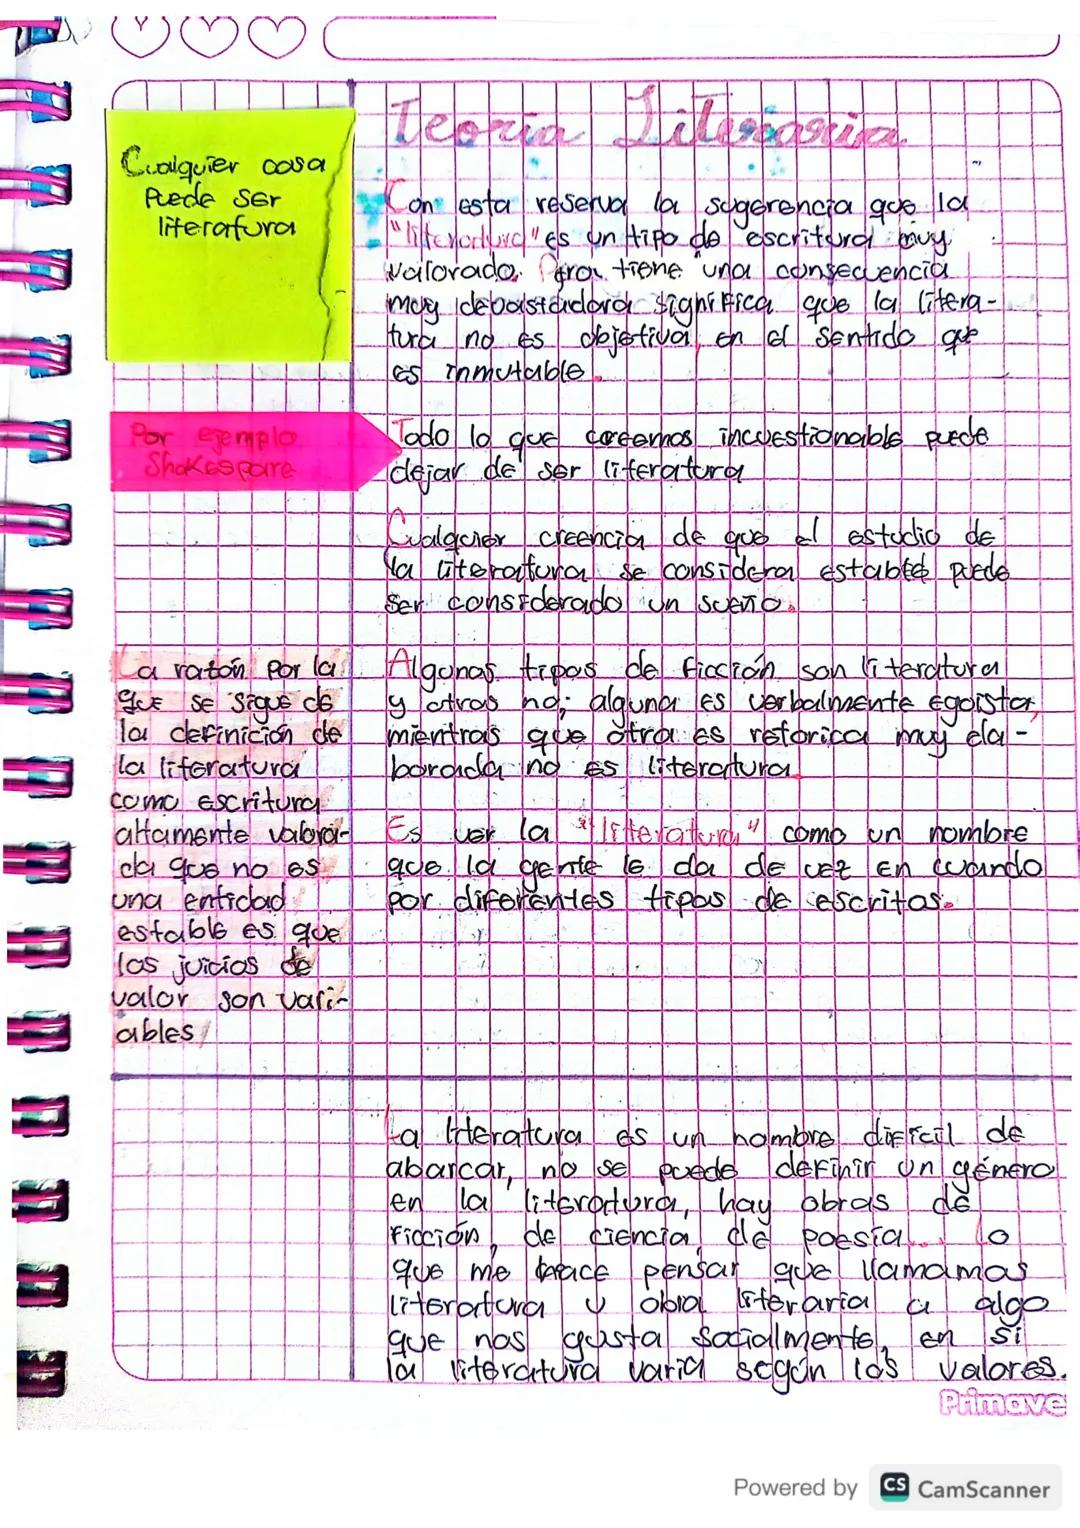 Teoria Literaria
Cualquier cosa
Puede ser
literatura
Con esta reserva la sugerencia que la
"literatura" es un tipo de escritura muy
valorada. Pero tiene una consecuencia
muy debastadora significa que la litera-
tura no es objetiva, en el sentido que
es inmutable.
Por ejemplo
Shakespare
Todo lo que creemos incuestionable puede
dejar de ser literatura
Cualquier creencia de que el estudio de
la literatura se considera estable puede
ser considerado un sueño.
La razón por la
que se sigue de
la definición de
la literatura
como escritura
altamente valora-
da que no es
una entidad
estable es que
los juicios de
valor son vari-
ables
Algunos tipos de ficción son literatura
y otros no; alguna es verbalmente egoista,
mientras que otra es retorica muy ela-
borada no es literatura.
Es ver la "literatura" como un nombre
que la gente le da de vez en cuando
por diferentes tipos de escritos.
La literatura es un nombre dificil de
abarcar, no se puede definir un género
en la literatura, hay obras de
ficción, de ciencia, de poesía... lo
que me hace pensar que llamamos
literatura y obra literaria a algo
que nos gusta socialmente, en si
la literatura varia según los valores.
Primave
Powered by CS CamScanner